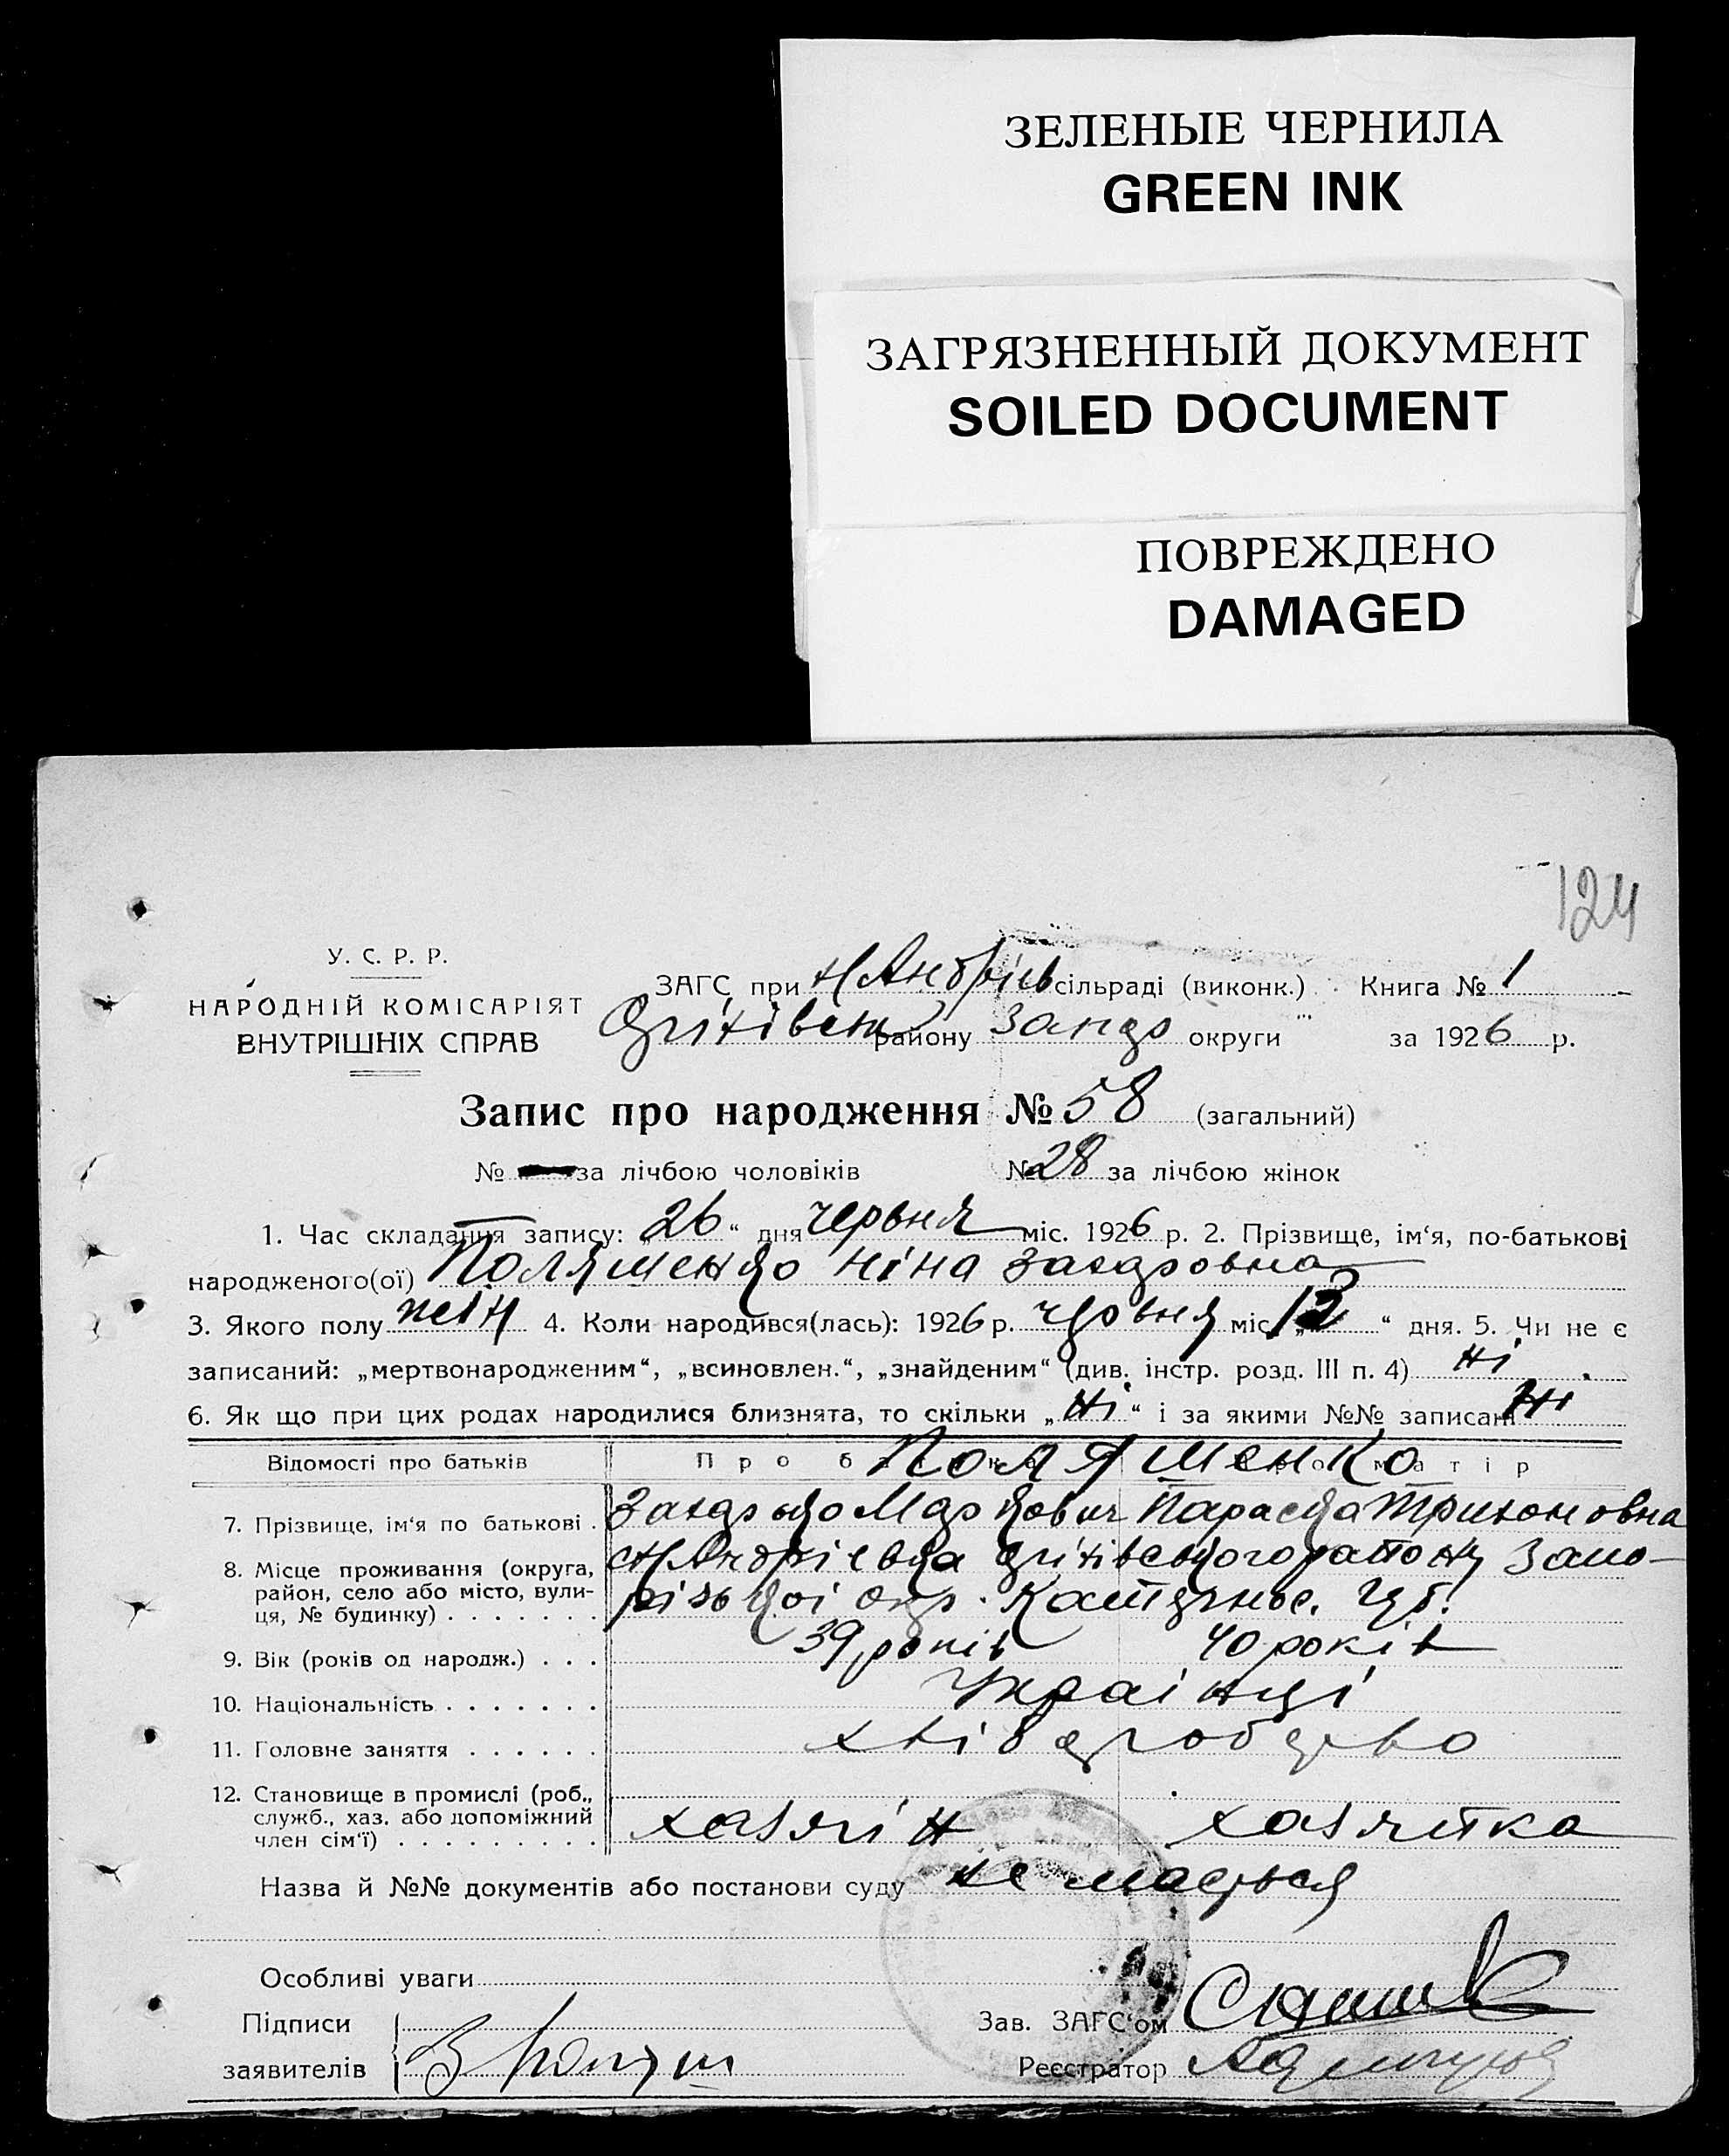 ЗЕЛЕНЫЕ ЧЕРНИЛА
GREEN INK
ЗАГРЯЗНЕННЫЙ ДОКУМЕНТ
SOILED DOCUMENT
ПОВРЕЖДЕНО
DAMAGED
124
У. С. Р. Р.
НАРОДНІЙ КОМІСАРІЯТ
ВНУТРІШНІХ СПРАВ
ЗАГС при Н Андріїв сільраді (виконк.) Книга № 1
району Запор округи за 1926 р.
Запис про народження № 58 (загальний)
№ за лічбою чоловіків № 28 за лічбою жінок
1. Час складання запису: „26“ дня червня міс. 1926 р. 2. Прізвище, ім‘я, по-батькові
народженого(ої) Поляшенко Ніна Захаровна
3. Якого полу жін 4. Коли народився(лась): 1926 р. червня міс. „ “ дня. 5. Чи не є
записаний: „мертвонародженим“, „всиновлен.“, „знайденим“ (див. інстр. розд. III п. 4) Ні
6. Як що при цих родах народилися близнята, то скільки „Ні“ і за якими №№ записані Ні
Відомості про батьків Про батька Про матір
Поляшенко
7. Прізвище, ім‘я по батькові . Захарко Маркович Параска Трихоновна
8. Місце проживання (округа, район, село або місто, вулиця, № будинку) . . . . . . . Н Андріевка оріхівського району Запорізької окр. Катеринос. Губ.
9. Вік (років од народж.) . . . 39 років 40 років
10. Національність . . . . . . . Українці
11. Головне заняття . . . . . . хліборобство
12. Становище в промислі (роб., служб., хаз. або допоміжний член сім‘ї) . . . . . . . . . . хазяїн хазяйка
Назва й №№ документів або постанови суду не мається
Особливі уваги
Підписи
заявителів
Зав. ЗАГС‘ом
Реєстратор